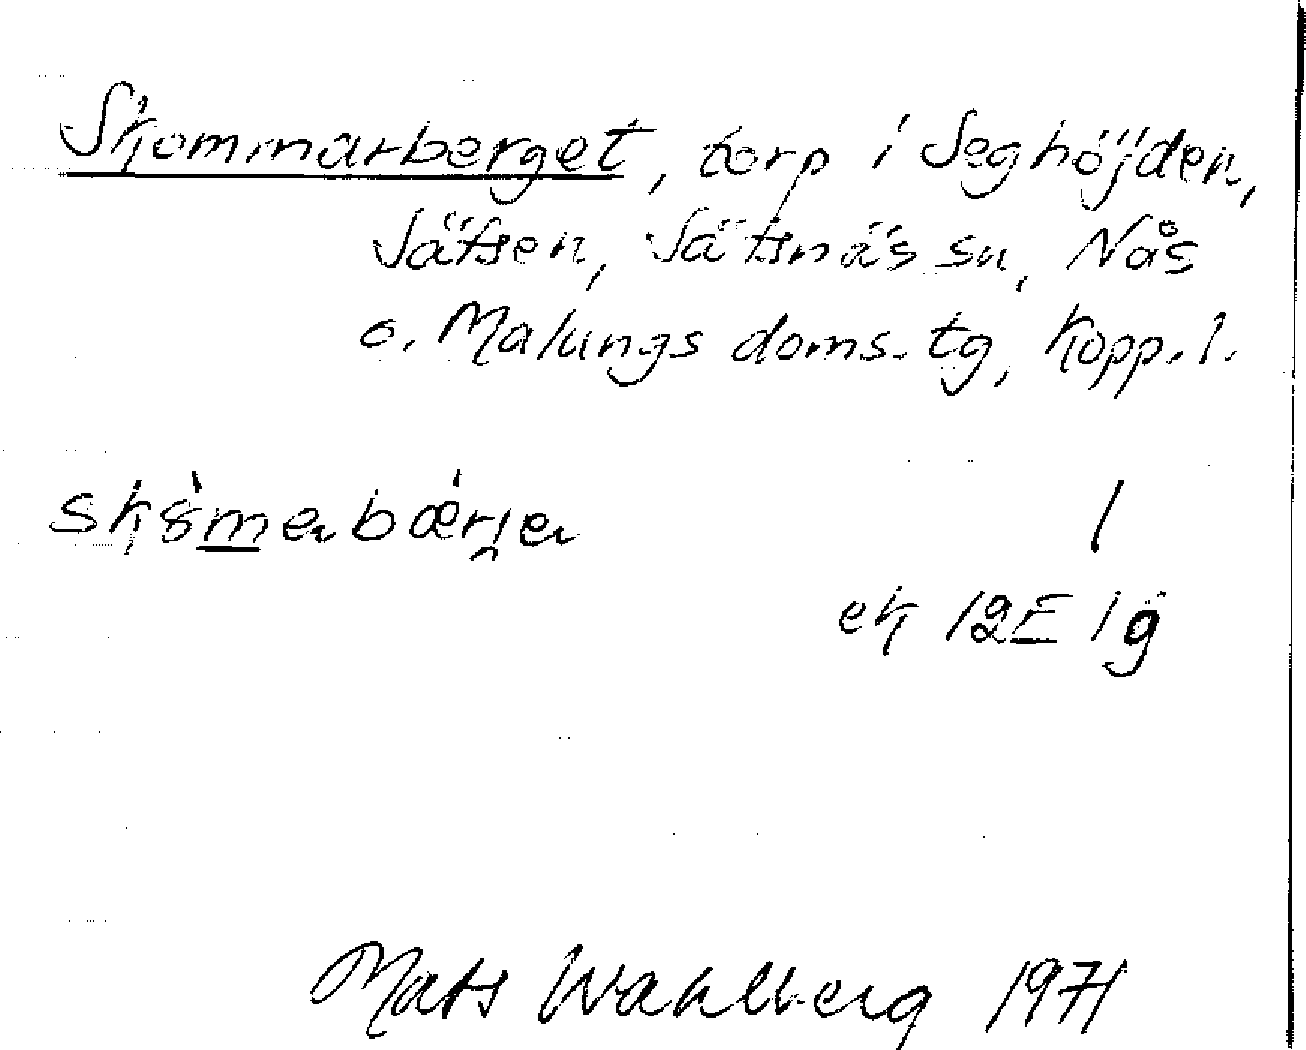 Skommarberget, torp i Seghöjden,
Sätsen, Sätsnäs sn, Nås
o. Malungs doms.tg, Kopp. l.
1
ek 12E 1g
Mats Wahlberg 1971